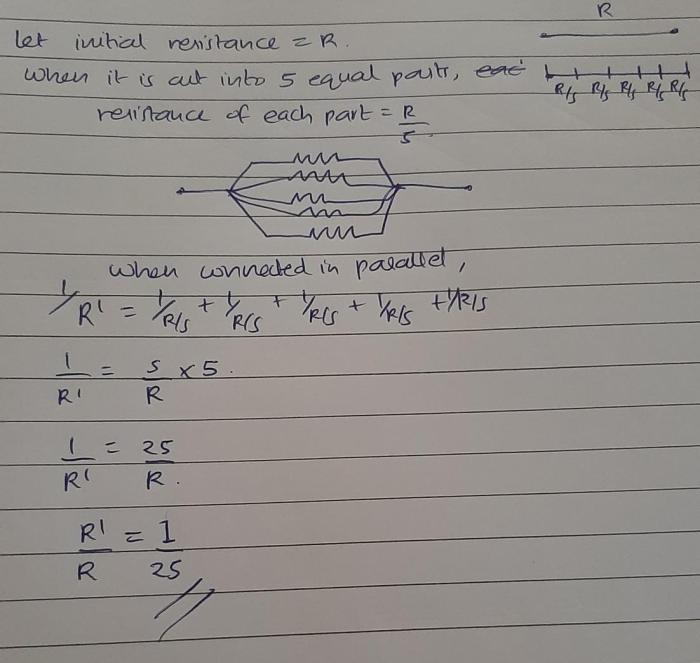 R
let initial resistance = R.
when it is cut into 5 equal parts,
R/5 R/5 R/5 R/5 R/5
resistance of each part = R/5
when connected in parallel,
1/R' = 1/R/5 + 1/R/5 + 1/R/5 + 1/R/5 + 1/R/5
1/R' = 5/R × 5.
1/R' = 25/R.
R'/R = 1/25